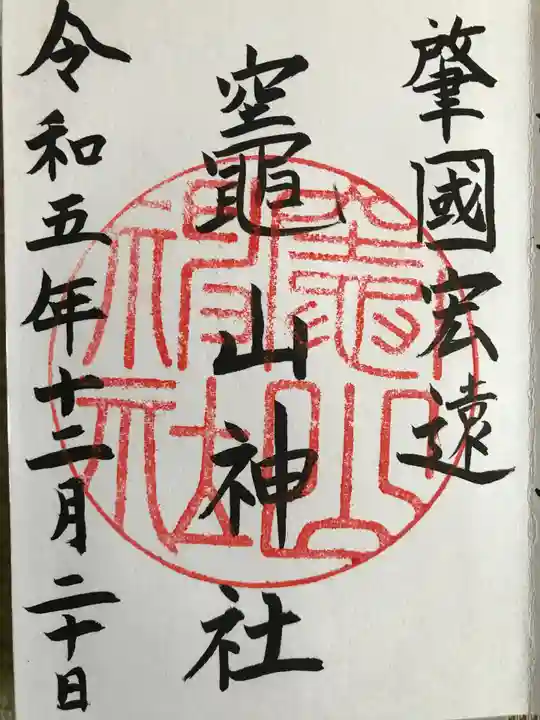 肇國宏遠
竈山神社
竈山神社
令和五年十二月二十日